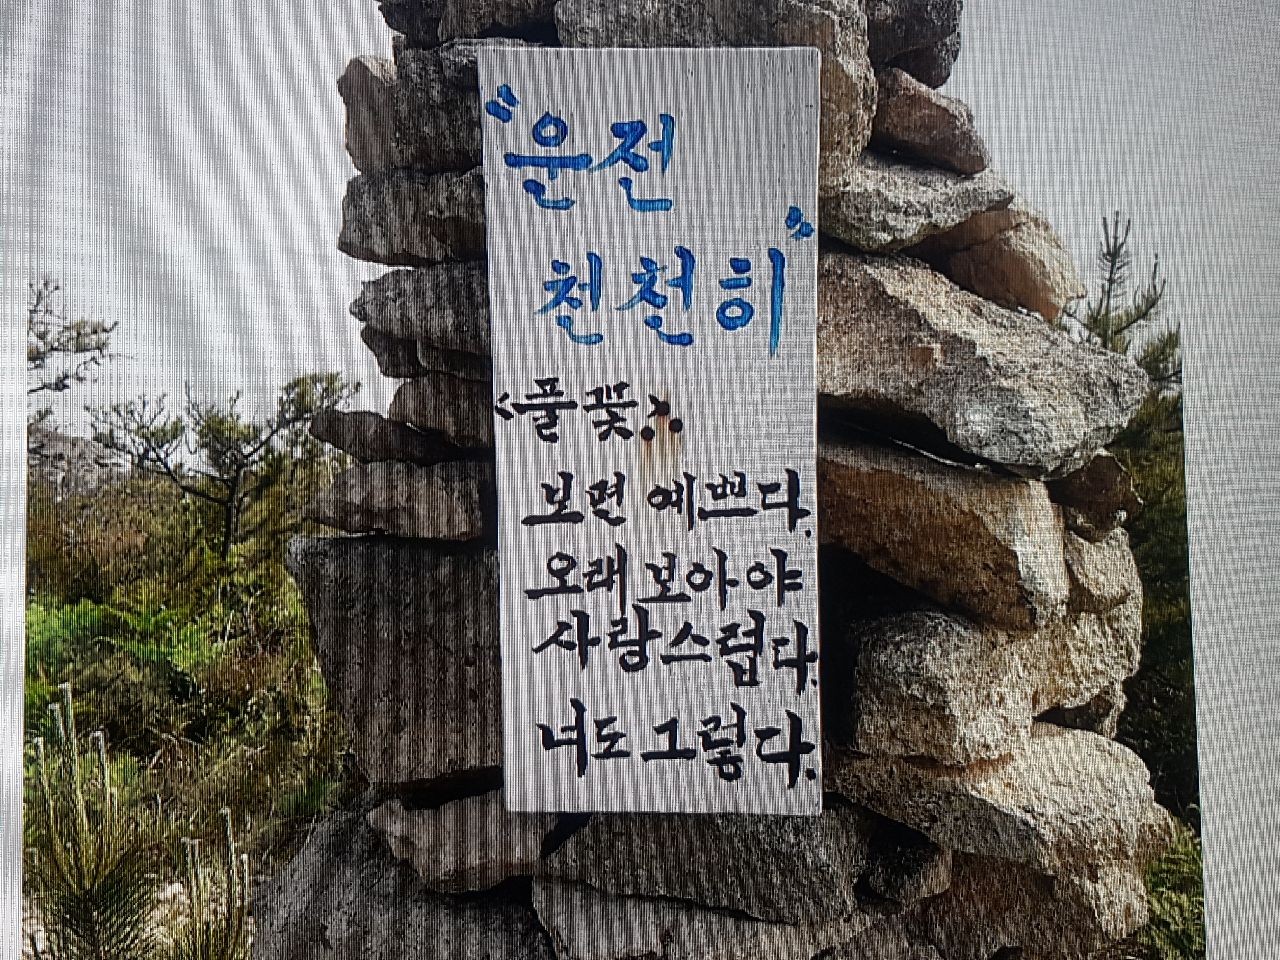 "운전
천천히"
<풀꽃>
보면 예쁘다.
오래 보아야
사랑스럽다.
너도 그렇다.